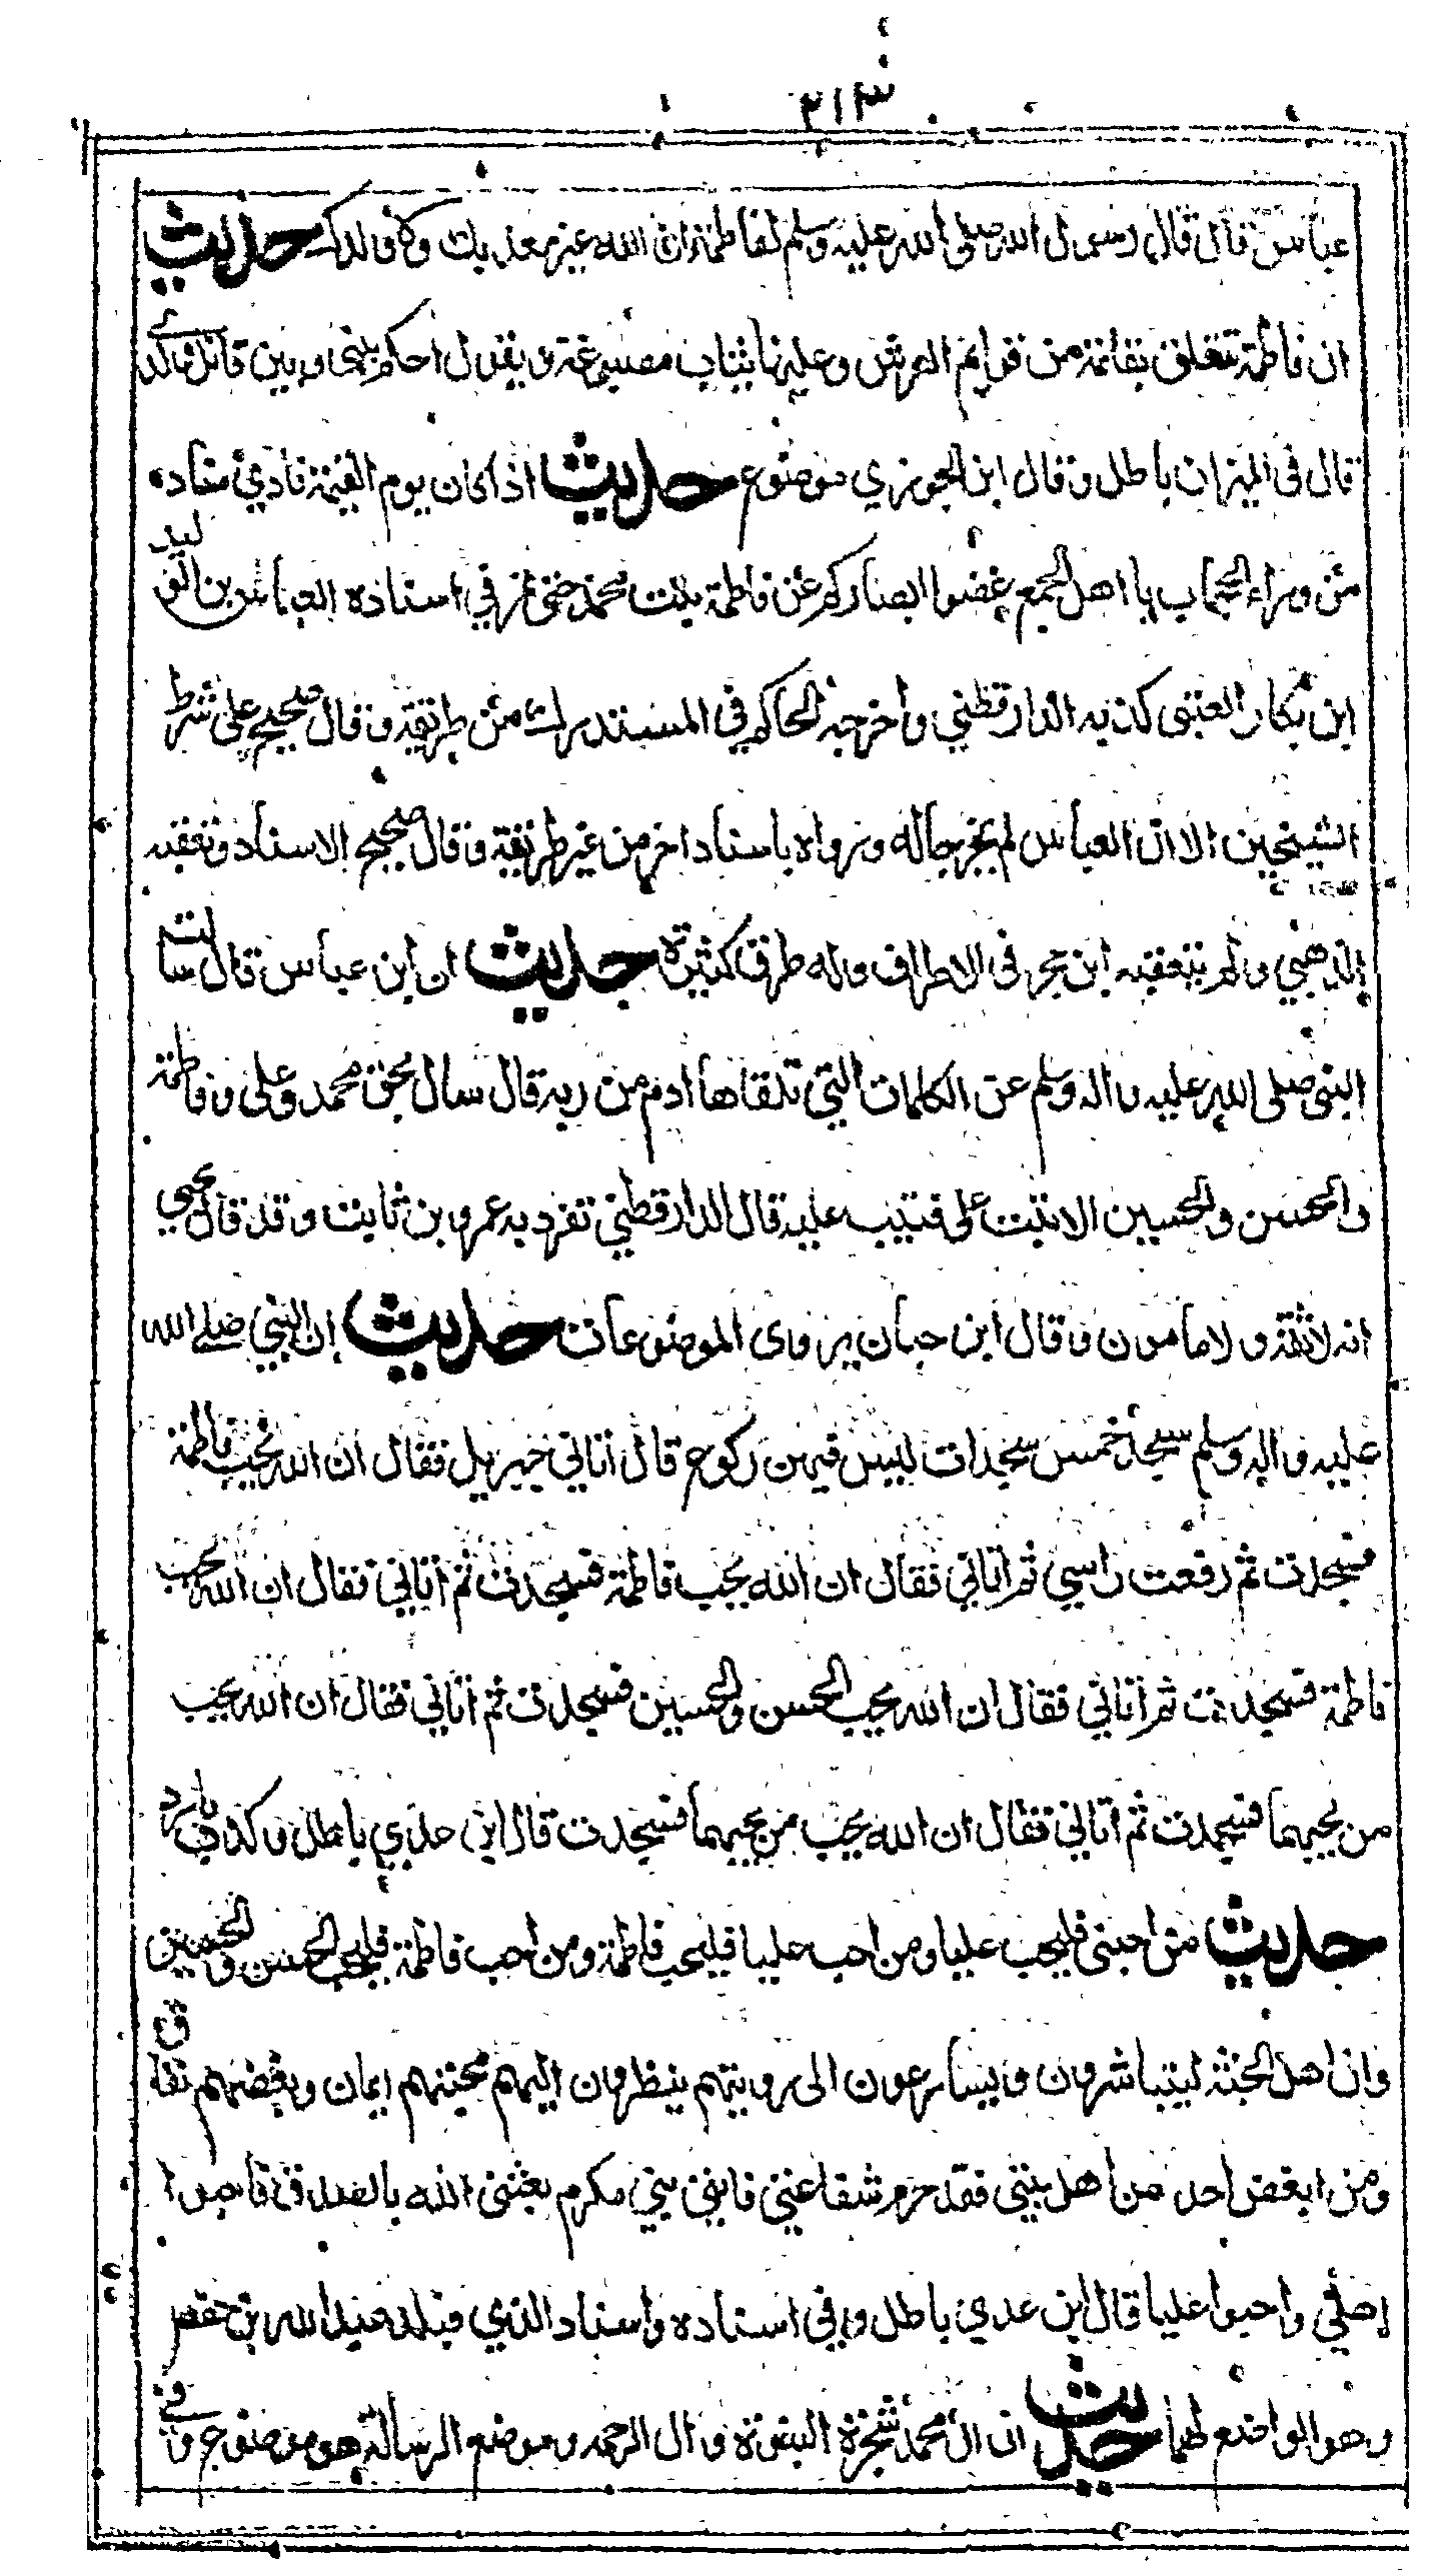 ٢١٣
عباس قال قال رسول الله صلى الله عليه وسلم لفاطمة ان الله غير معذبك ولا ولدك حديث
ان فاطمة تتعلق بقائمة من قوايم العرش وعليها ثياب مصبوغة ويقول احكم بيني وبين قاتل ولدي
قال في الميزان باطل وقال ابن الجوزي موضوع حديث اذا كان يوم القيمة نادي مناد
من وراء الحجاب يا اهل الجمع غضوا ابصاركم عن فاطمة بنت محمد حتى تمر في اسناده العباس بن الوليد
ابن بكار العتبي كذبه الدارقطني واخرجه الحاكم في المستدرك من طريقه وقال صحيح على شرط
الشيخين الا ان العباس لم يخرجا له ورواه باسناد اخر من غير طريقه وقال صحيح الاسناد وتعقبه
الذهبي ولم يتعقبه ابن حجر في الاطراف وله طرق كثيرة حديث ان ابن عباس قال سالت
النبي صلى الله عليه واله وسلم عن الكلمات التي تلقاها ادم من ربه قال سال بحق محمد وعلى وفاطمة
والحسن والحسين الا تبت على فتيب عليه قال الدارقطني تفرد به عمرو بن ثابت وقد قال يحيى
انه لا ثقة ولا مامون وقال ابن حبان يروى الموضوعات حديث ان النبي صلى الله
عليه واله وسلم سجد خمس سجدات ليس فيهن ركوع قال اتاني جبريل فقال ان الله يحب فاطمة
فسجدت ثم رفعت راسي ثم اتاني فقال ان الله يحب فاطمة فسجدت ثم اتاني فقال ان الله يحب
فاطمة فسجدت ثم اتاني فقال ان الله يحب الحسن والحسين فسجدت ثم اتاني فقال ان الله يحب
من يحبهما فسجدت ثم اتاني فقال ان الله يحب من يحبهما فسجدت قال ابن عدي باطل وكذب بارد
حديث من احبني فليحب عليا ومن احب عليا فليحب فاطمة ومن احب فاطمة فليحب الحسن والحسين
وان اهل الجنة ليتباشرون ويسارعون الى رويتهم ينظرون اليهم محبتهم ايمان وبغضهم نفاق
ومن ابغض احد من اهل بيتي فقد حرم شفاعتي فانني نبي مكرم بعثني الله بالصدق فاحبوا
اهلي واحبوا عليا قال ابن عدي باطل وفي اسناده واسناد الذي قبله عبد الله بن حفص
وهو الواضع لهما حديث ان ال محمد شجرة النبوة وال الرحمة وموضع الرسالة هو موضوع وفي